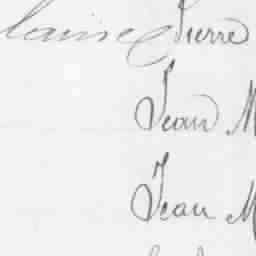 laine Pierre
Jean M
Jean M